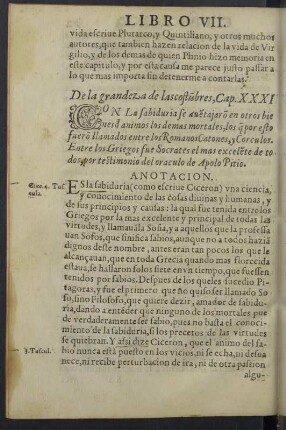 LIBRO VII.
vida escriue Plutarco, y Quintiliano, y otros muchos
autores, que tambien hazen relacion de la vida de Vir
gilio, y de los demas de quien Plinio hizo memoria en
este capitulo, y por esta causa me parece justo passar a
lo que mas importa sin detenerme a contarlas.
De la grandeza de las costũbres, Cap. XXXI
CON la sabiduria se auẽtajarõ en otros bie
nes del animo a los demas mortales, los q̃ por esto
fuerõ llamados entre los Romanos Catones, y Corculos.
Entre los Griegos fue Socrates el mas excelẽte de to
dos, por testimonio del oraculo de Apolo Pitio.
ANOTACION.
Cice. 4. Tus
cula.
ES la sabiduria (como escriue Ciceron) vna ciencia,
y conocimiento de las cosas diuinas y humanas, y
de sus principios y causas: la qual fue tenida entre los
Griegos por la mas excelente y principal de todas las
virtudes, y llamauãla Sofia, y a aquellos que la professa
uan Sofos, que sinifica sabios, aunque no a todos haziã
dignos deste nombre, antes eran tan pocos los que le
alcançauan, que en toda Grecia quando mas florecida
estaua, se hallaron solos siete en vn tiempo, que fuessen
tenidos por sabios. Despues de los quales sucedio Pi-
tagoras, y fue el primero que no quiso ser llamado So
fo, sino Filosofo, que quiere dezir, amador de sabidu-
ria, dando a entẽder que ninguno de los mortales pue
de verdaderamente ser sabio, pues no basta el conoci-
miento de la sabiduria, si los precetos de las virtudes
se quiebran. Y assi dize Ciceron, que el animo del sa-
3. Tuscul.
bio nunca està puesto en los vicios, ni se echa, ni desua
nece, ni recibe perturbacion de ira, ni de otra passion
algu-